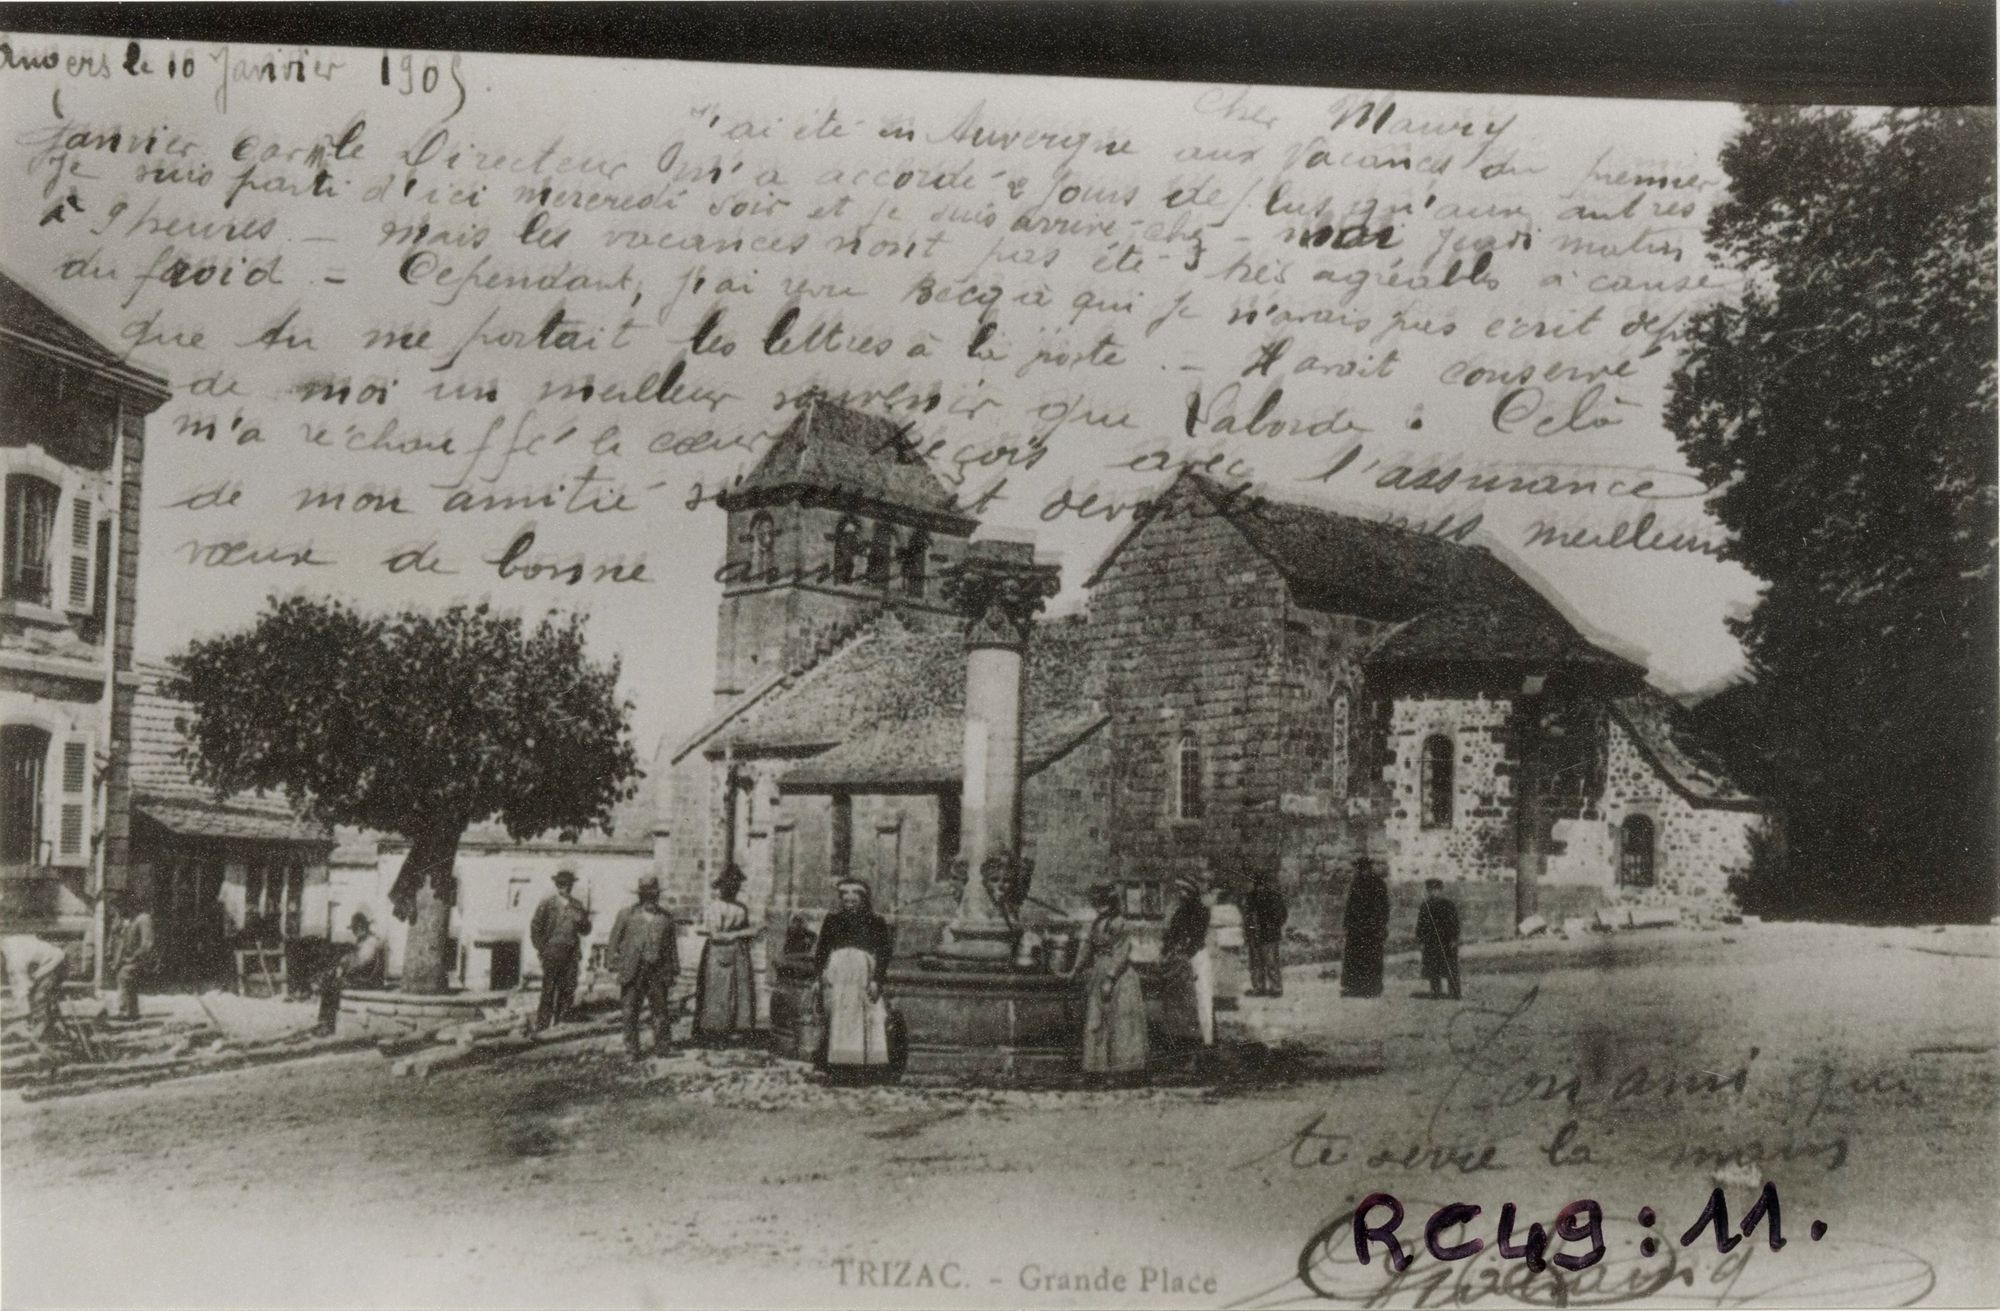 Angers le 10 Janvier 1905.
Cher Maury
J'ai été en Auvergne aux vacances du premier
Janvier car le Directeur m'a accordé 2 jours de plus qu'aux autres
Je suis parti d'ici mercredi soir et je suis arrivé chez moi jeudi matin
à 9 heures. — Mais les vacances n'ont pas été très agréables à cause
du froid. — Cependant, j'ai revu Becq à qui je n'avais pas écrit
que tu me portait les lettres à la poste. — Il avait conservé
de moi un meilleur souvenir que Laborde. Celà
m'a réchauffé le cœur. Reçois avec l'assurance
de mon amitié sincère et dévouée mes meilleurs
vœux de bonne année
Ton ami qui
te serre la main
RC49:11.
TRIZAC. - Grande Place